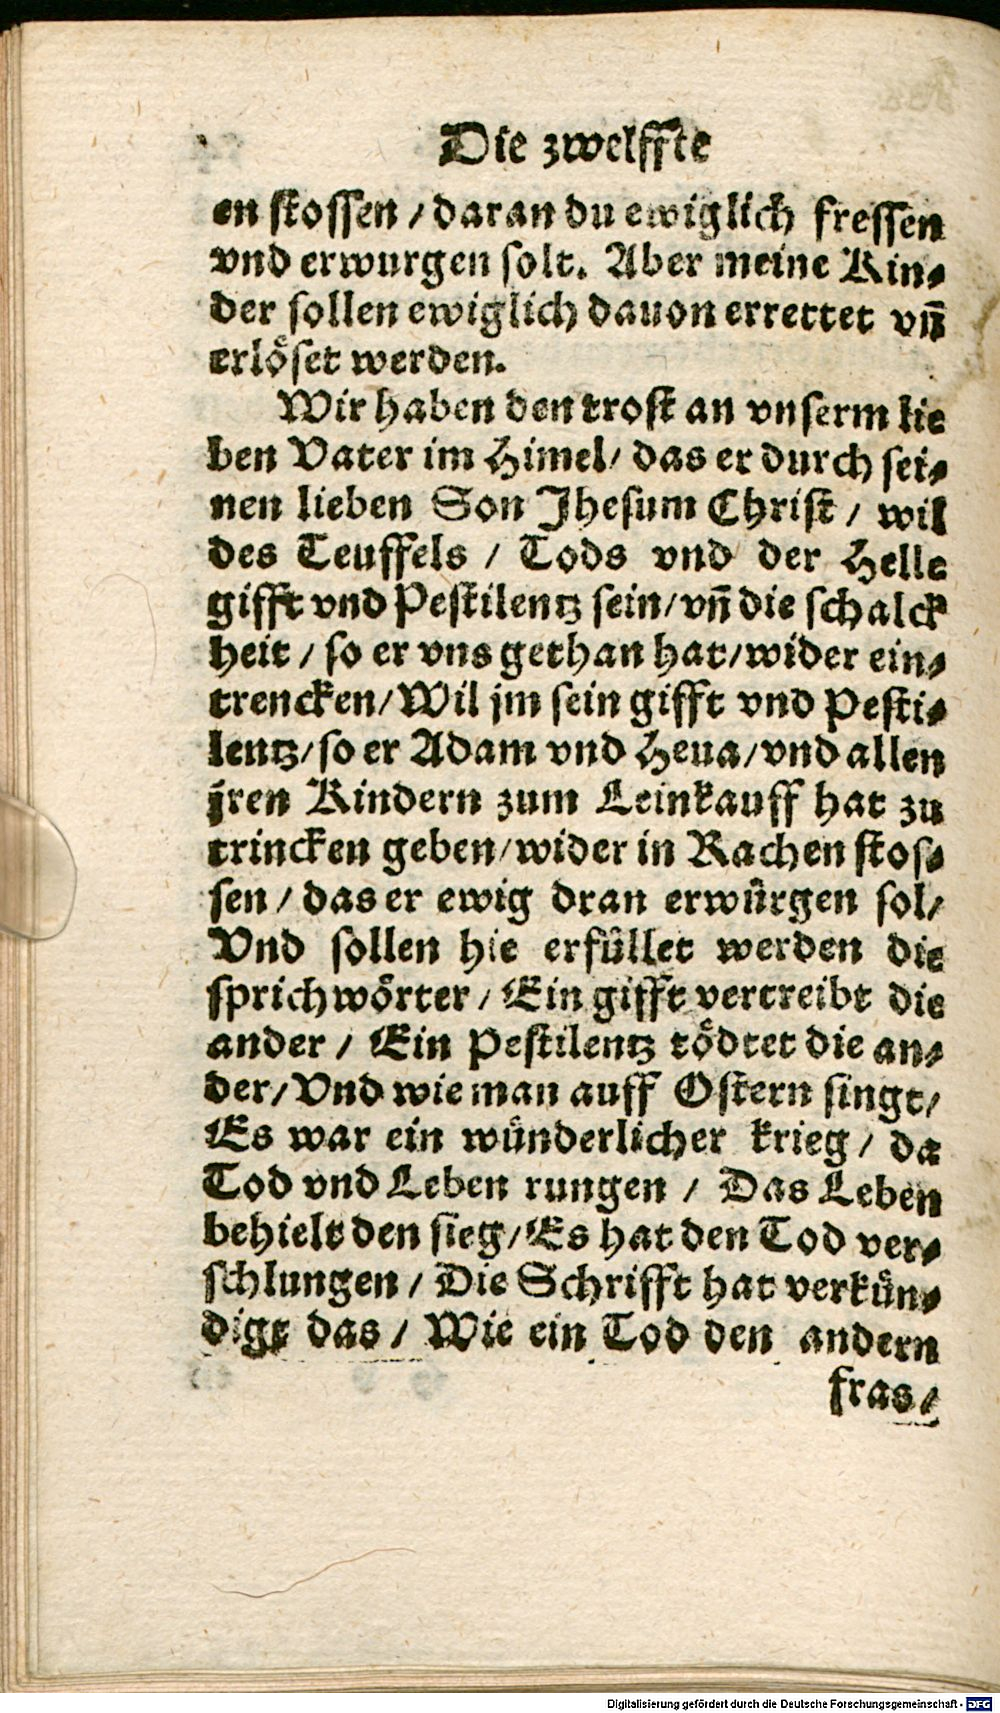 Die zwelffte
en stossen / daran du ewiglich fressen
vnd erwurgen solt. Aber meine Kin⸗
der sollen ewiglich dauon errettet vñ
erlöset werden.
Wir haben den trost an vnserm lie
ben Vater im Himel / das er durch sei⸗
nen lieben Son Jhesum Christ / wil
des Teuffels / Tods vnd der Helle
gifft vnd Pestilentz sein / vñ die schalck
heit / so er vns gethan hat / wider ein⸗
trencken / Wil jm sein gifft vnd Pesti⸗
lentz / so er Adam vnd Heua / vnd allen
jren Kindern zum Leinkauff hat zu
trincken geben / wider in Rachen stos⸗
sen / das er ewig dran erwürgen sol /
Vnd sollen hie erfüllet werden die
sprichwörter / Ein gifft vertreibt die
ander / Ein Pestilentz tödtet die an⸗
der / Vnd wie man auff Ostern singt /
Es war ein wünderlicher krieg / da
Tod vnd Leben rungen / Das Leben
behielt den sieg / Es hat den Tod ver⸗
schlungen / Die Schrifft hat verkün⸗
digt das / Wie ein Tod den andern
fras /
Digitalisierung gefördert durch die Deutsche Forschungsgemeinschaft - DFG